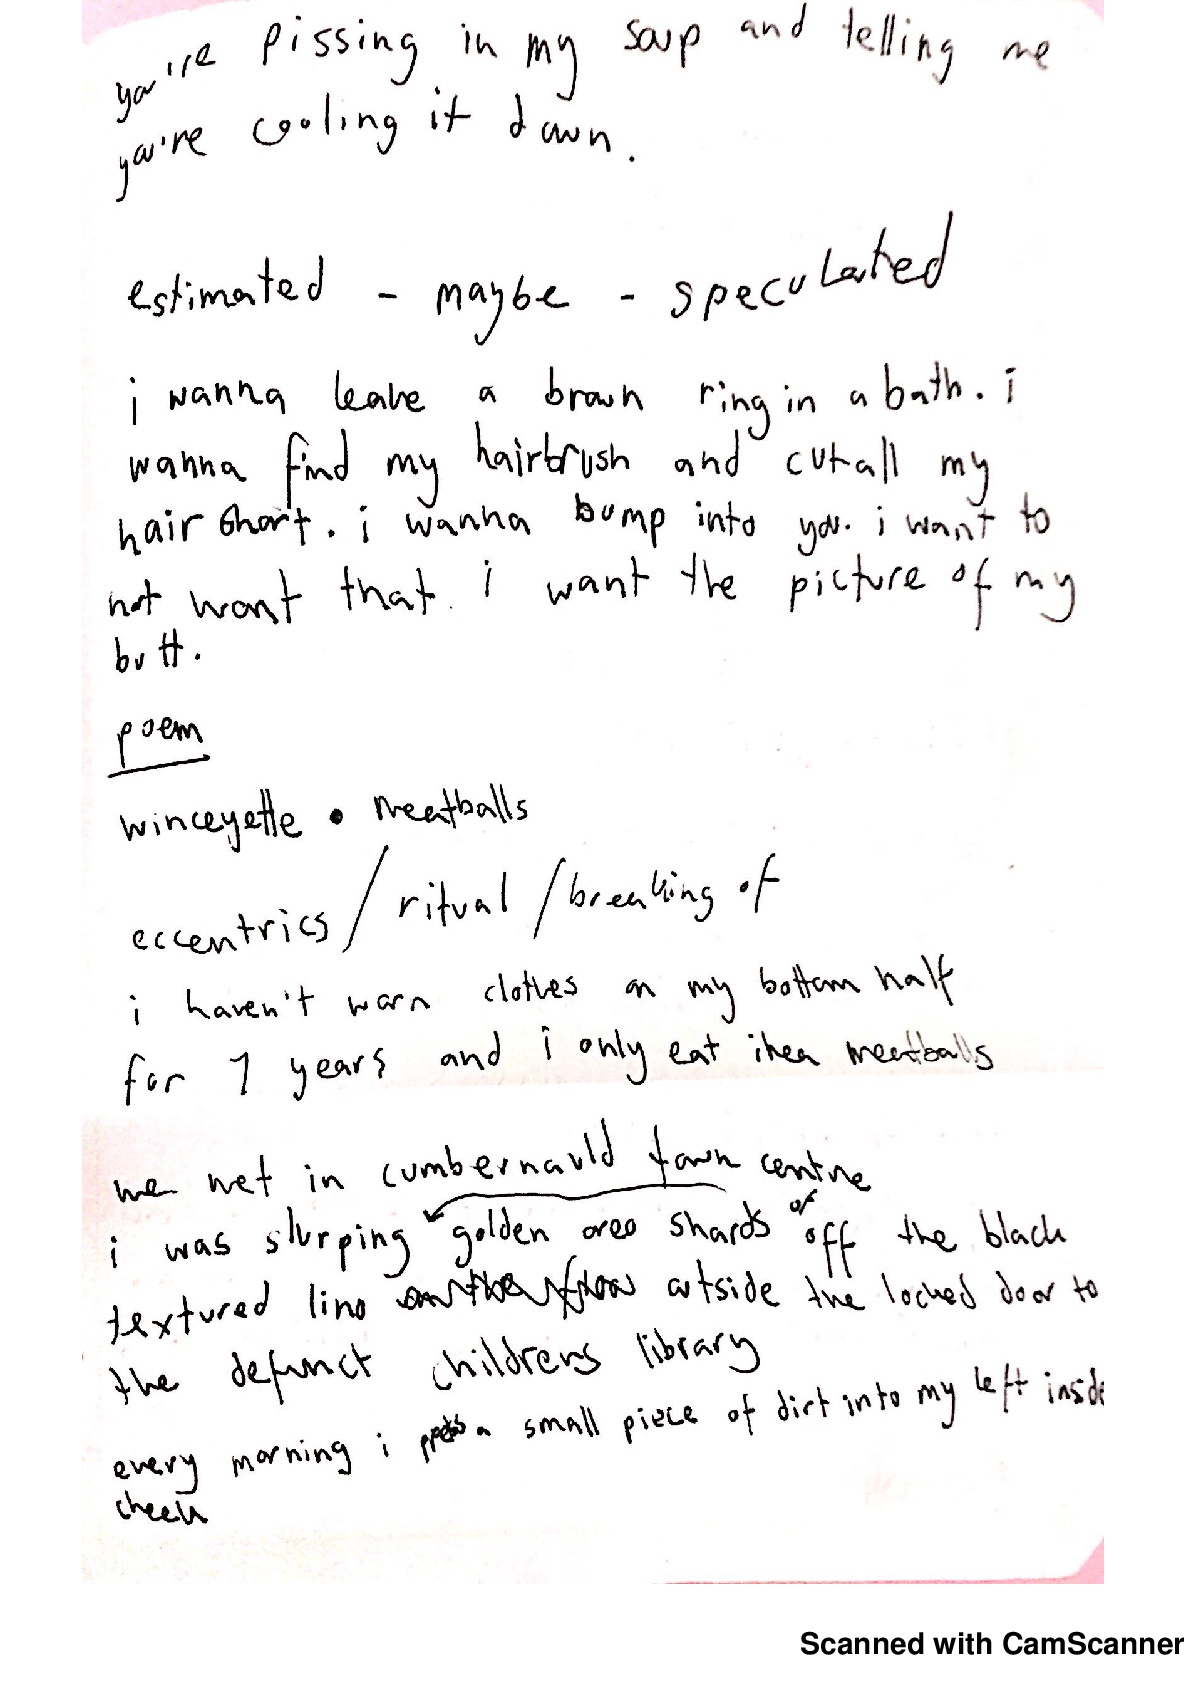 you're pissing in my soup and telling me
you're cooling it down.
estimated - maybe - speculated
i wanna leave a brown ring in a bath. i
wanna find my hairbrush and cut all my
hair short. i wanna bump into you. i want to
not want that. i want the picture of my
butt.
poem
winceyette • meatballs
eccentrics / ritual / breaking of
i haven't worn clothes on my bottom half
for 7 years and i only eat ikea meatballs
we met in cumbernauld town centre
i was slurping golden oreo shards of off the black
textured lino outside the locked door to
the defunct childrens library
every morning i press a small piece of dirt into my left inside
cheek
Scanned with CamScanner